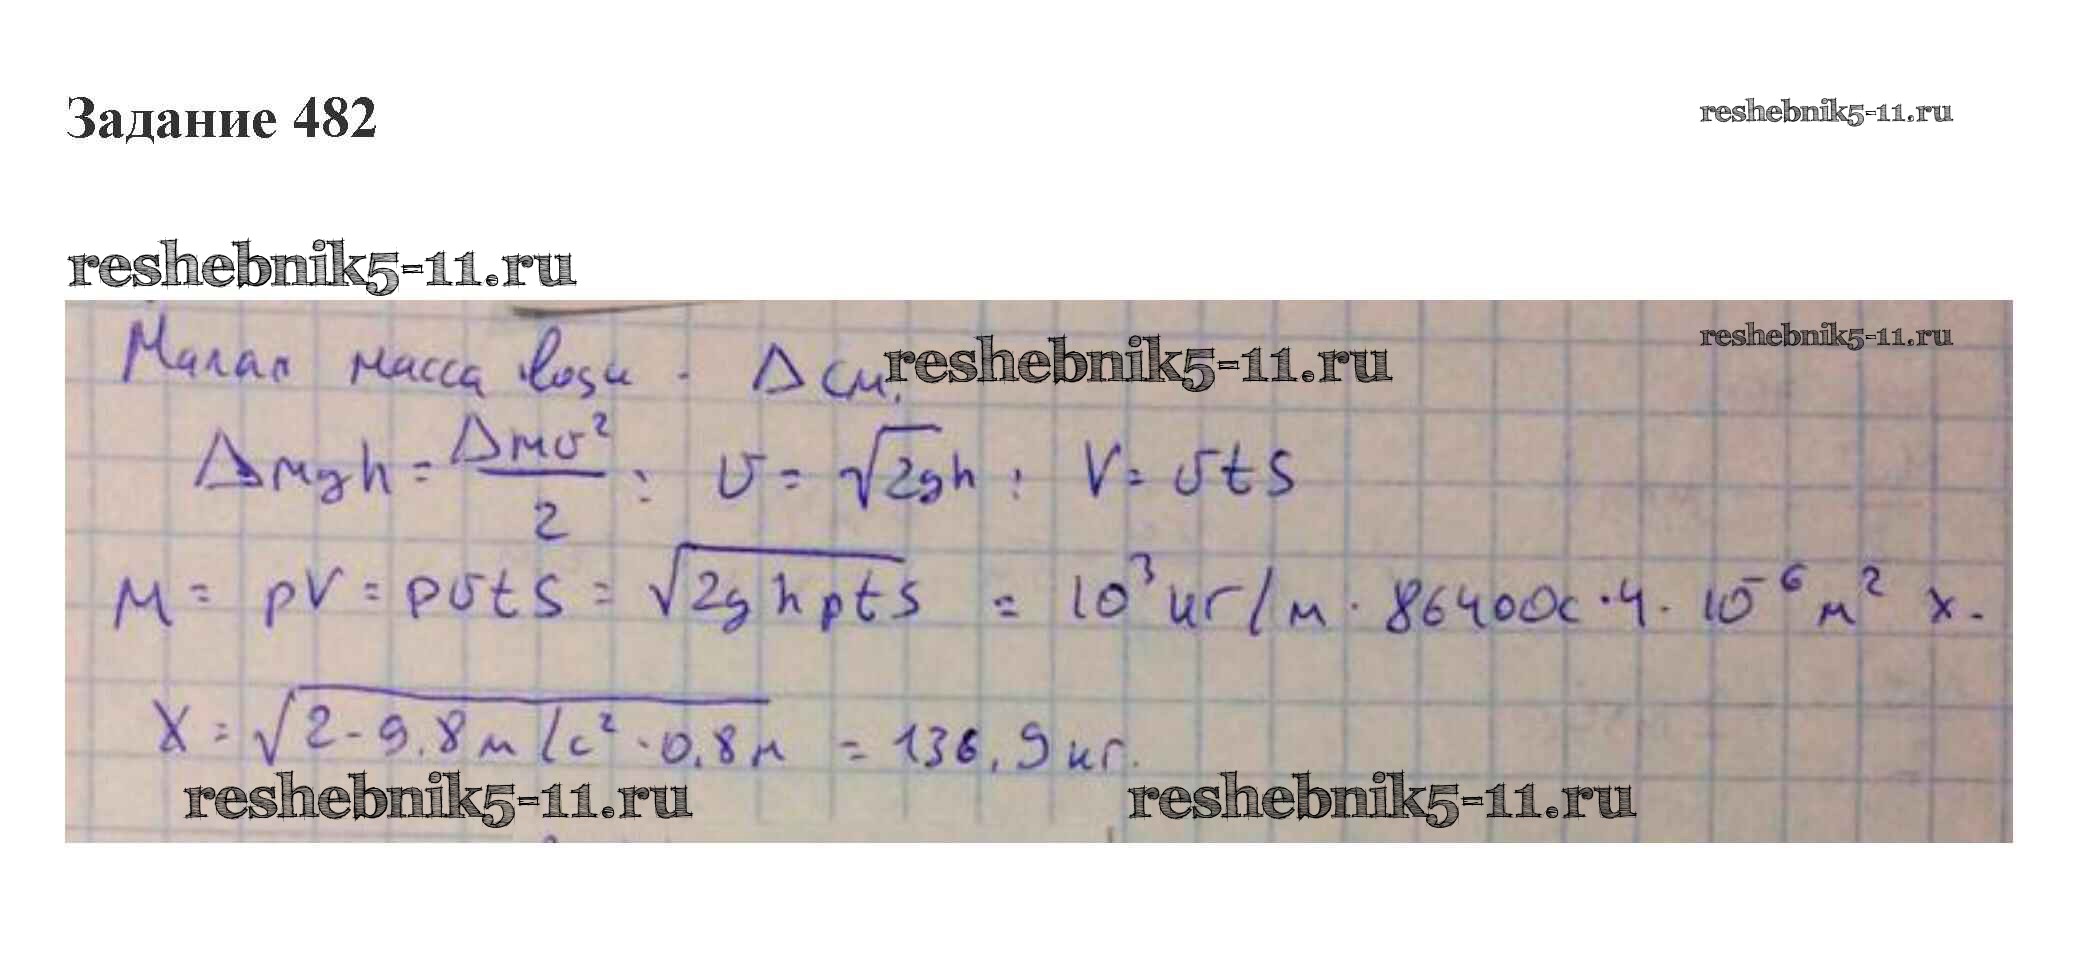 Задание 482
reshebnik5-11.ru
reshebnik5-11.ru
reshebnik5-11.ru
Малая масса воды - Δсм. reshebnik5-11.ru
Δmgh = Δmv²/2 : v = √2gh : V = vtS
M = pV = pvtS = √2ghptS = 10³ кг/м · 86400с · 4 · 10⁻⁶ м² x.
X = √2-9.8м/с² · 0,8м = 136,9 кг.
reshebnik5-11.ru reshebnik5-11.ru